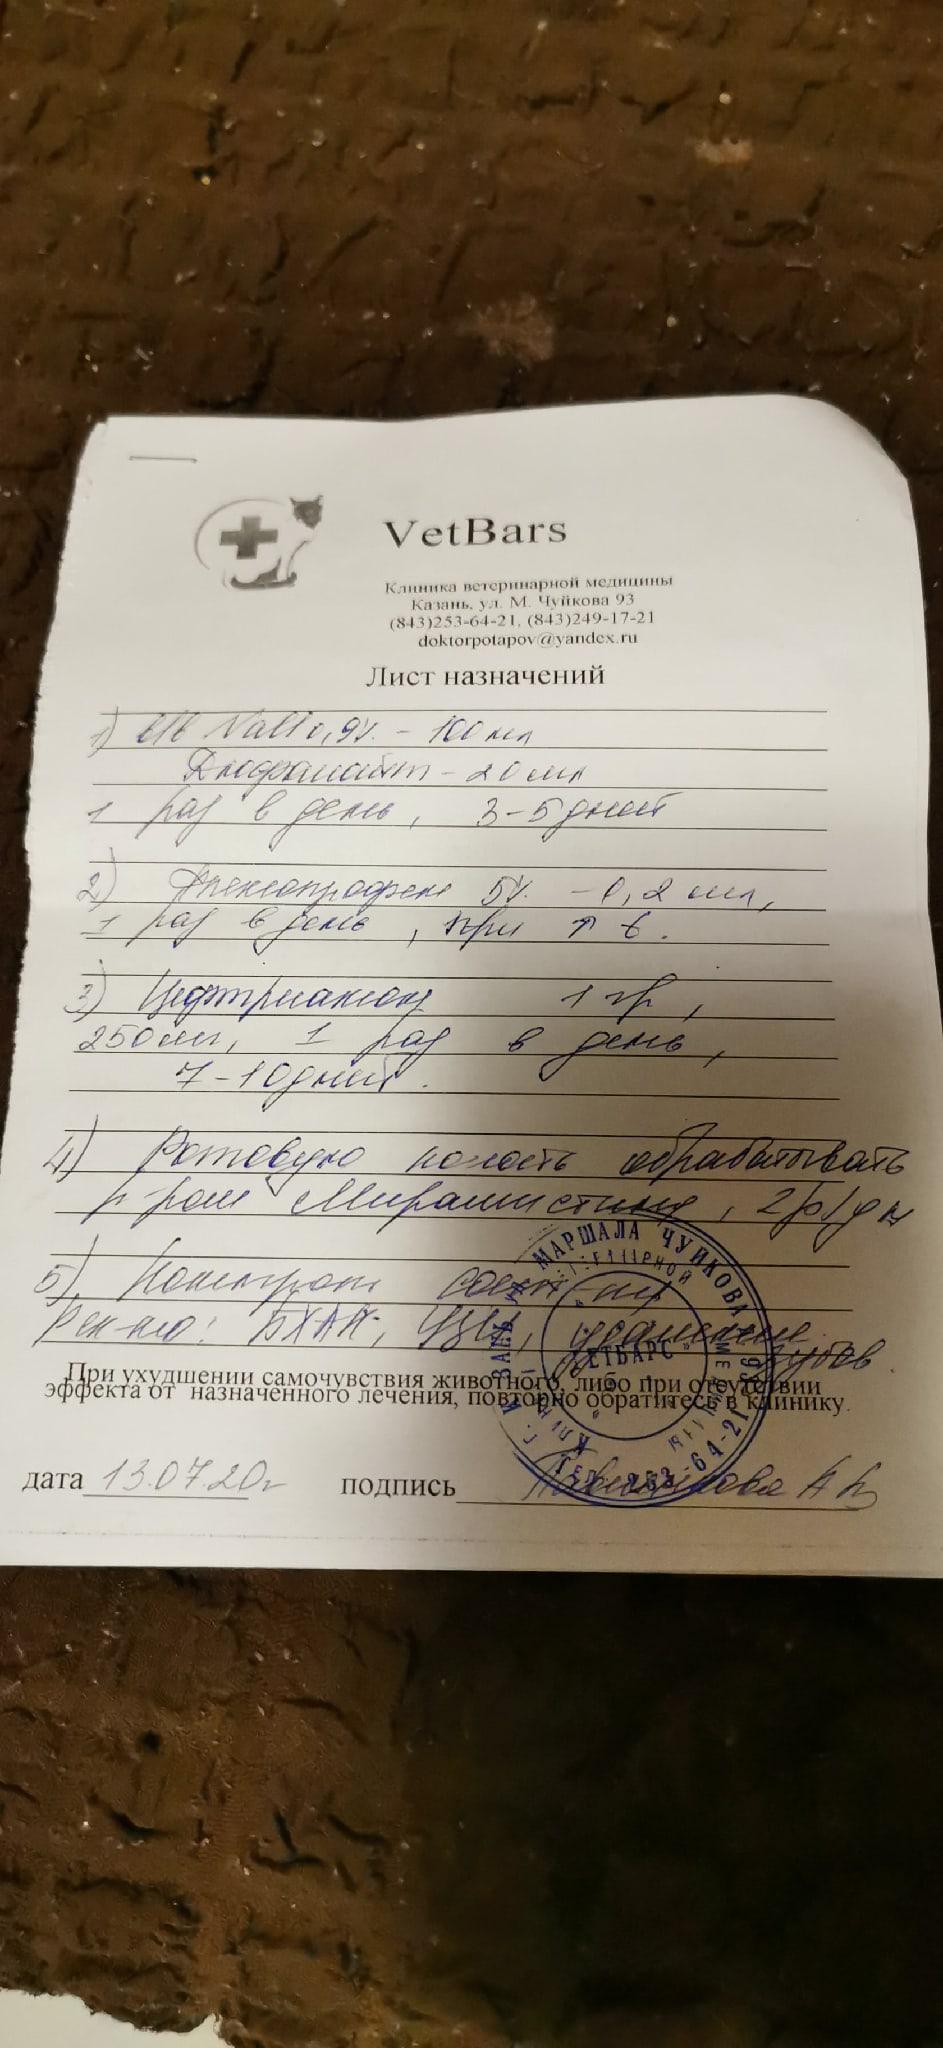 VetBars
Клиника ветеринарной медицины
Казань, ул. М. Чуйкова 93
(843)253-64-21, (843)249-17-21
doktorpotapov@yandex.ru
Лист назначений
1) в/в NaCl 0,9% - 100 мл
Дюфалайт - 20 мл
1 раз в день, 3-5 дней
2) 5% - 0,2 мл,
1 раз в день, при ↑ t.
3) Цефтриаксон 1 гр,
1 раз в день,
7-10 дней.
4) Ротовую полость обрабатывать
р-ром Мирамистина, 2р/дн
5)
Рек-но: БХАК, УЗИ, удаление
зубов
При ухудшении самочувствия животного, либо при отсутствии
эффекта от назначенного лечения, повторно обратитесь в клинику.
дата 13.07.20г подпись
МАРШАЛА ЧУЙКОВА 93
"ВЕТБАРС"
ТЕЛ. 253-64-21